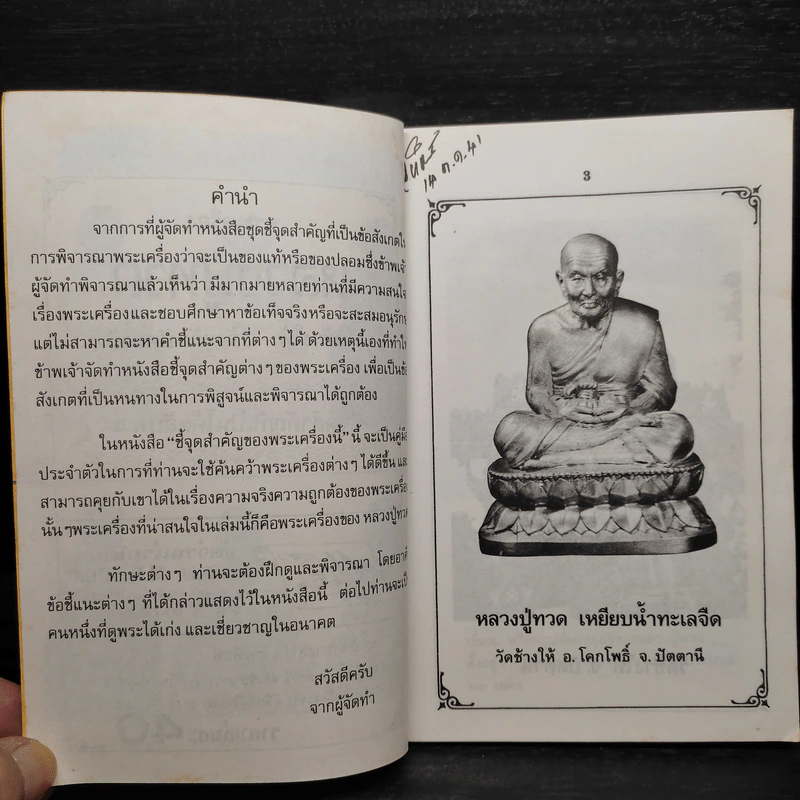 คำนำ
จากการที่ผู้จัดทำหนังสือชุดชี้จุดสำคัญที่เป็นข้อสังเกตใน
การพิจารณาพระเครื่องว่าจะเป็นของแท้หรือของปลอมซึ่งข้าพเจ้า
ผู้จัดทำพิจารณาแล้วเห็นว่า มีมากมายหลายท่านที่มีความสนใจ
เรื่องพระเครื่องและชอบศึกษาหาข้อเท็จจริงหรือจะสะสมอนุรักษ์
แต่ไม่สามารถจะหาคำชี้แนะจากที่ต่างๆได้ ด้วยเหตุนี้เองที่ทำให้
ข้าพเจ้าจัดทำหนังสือชี้จุดสำคัญต่างๆของพระเครื่อง เพื่อเป็นข้อ
สังเกตที่เป็นหนทางในการพิสูจน์และพิจารณาได้ถูกต้อง
ในหนังสือ "ชี้จุดสำคัญของพระเครื่องนี้" นี้ จะเป็นคู่มือ
ประจำตัวในการที่ท่านจะใช้ค้นคว้าพระเครื่องต่างๆ ได้ดีขึ้น และ
สามารถคุยกับเขาได้ในเรื่องความจริงความถูกต้องของพระเครื่อง
นั้นๆพระเครื่องที่น่าสนใจในเล่มนี้ก็คือพระเครื่องของ หลวงปู่ทวด
ทักษะต่างๆ ท่านจะต้องฝึกดูและพิจารณา โดยอาศัย
ข้อชี้แนะต่างๆ ที่ได้กล่าวแสดงไว้ในหนังสือนี้ ต่อไปท่านจะเป็น
คนหนึ่งที่ดูพระได้เก่ง และเชี่ยวชาญในอนาคต
สวัสดีครับ
จากผู้จัดทำ
14 ต.ค. 41
3
หลวงปู่ทวด เหยียบน้ำทะเลจืด
วัดช้างให้ อ. โคกโพธิ์ จ. ปัตตานี